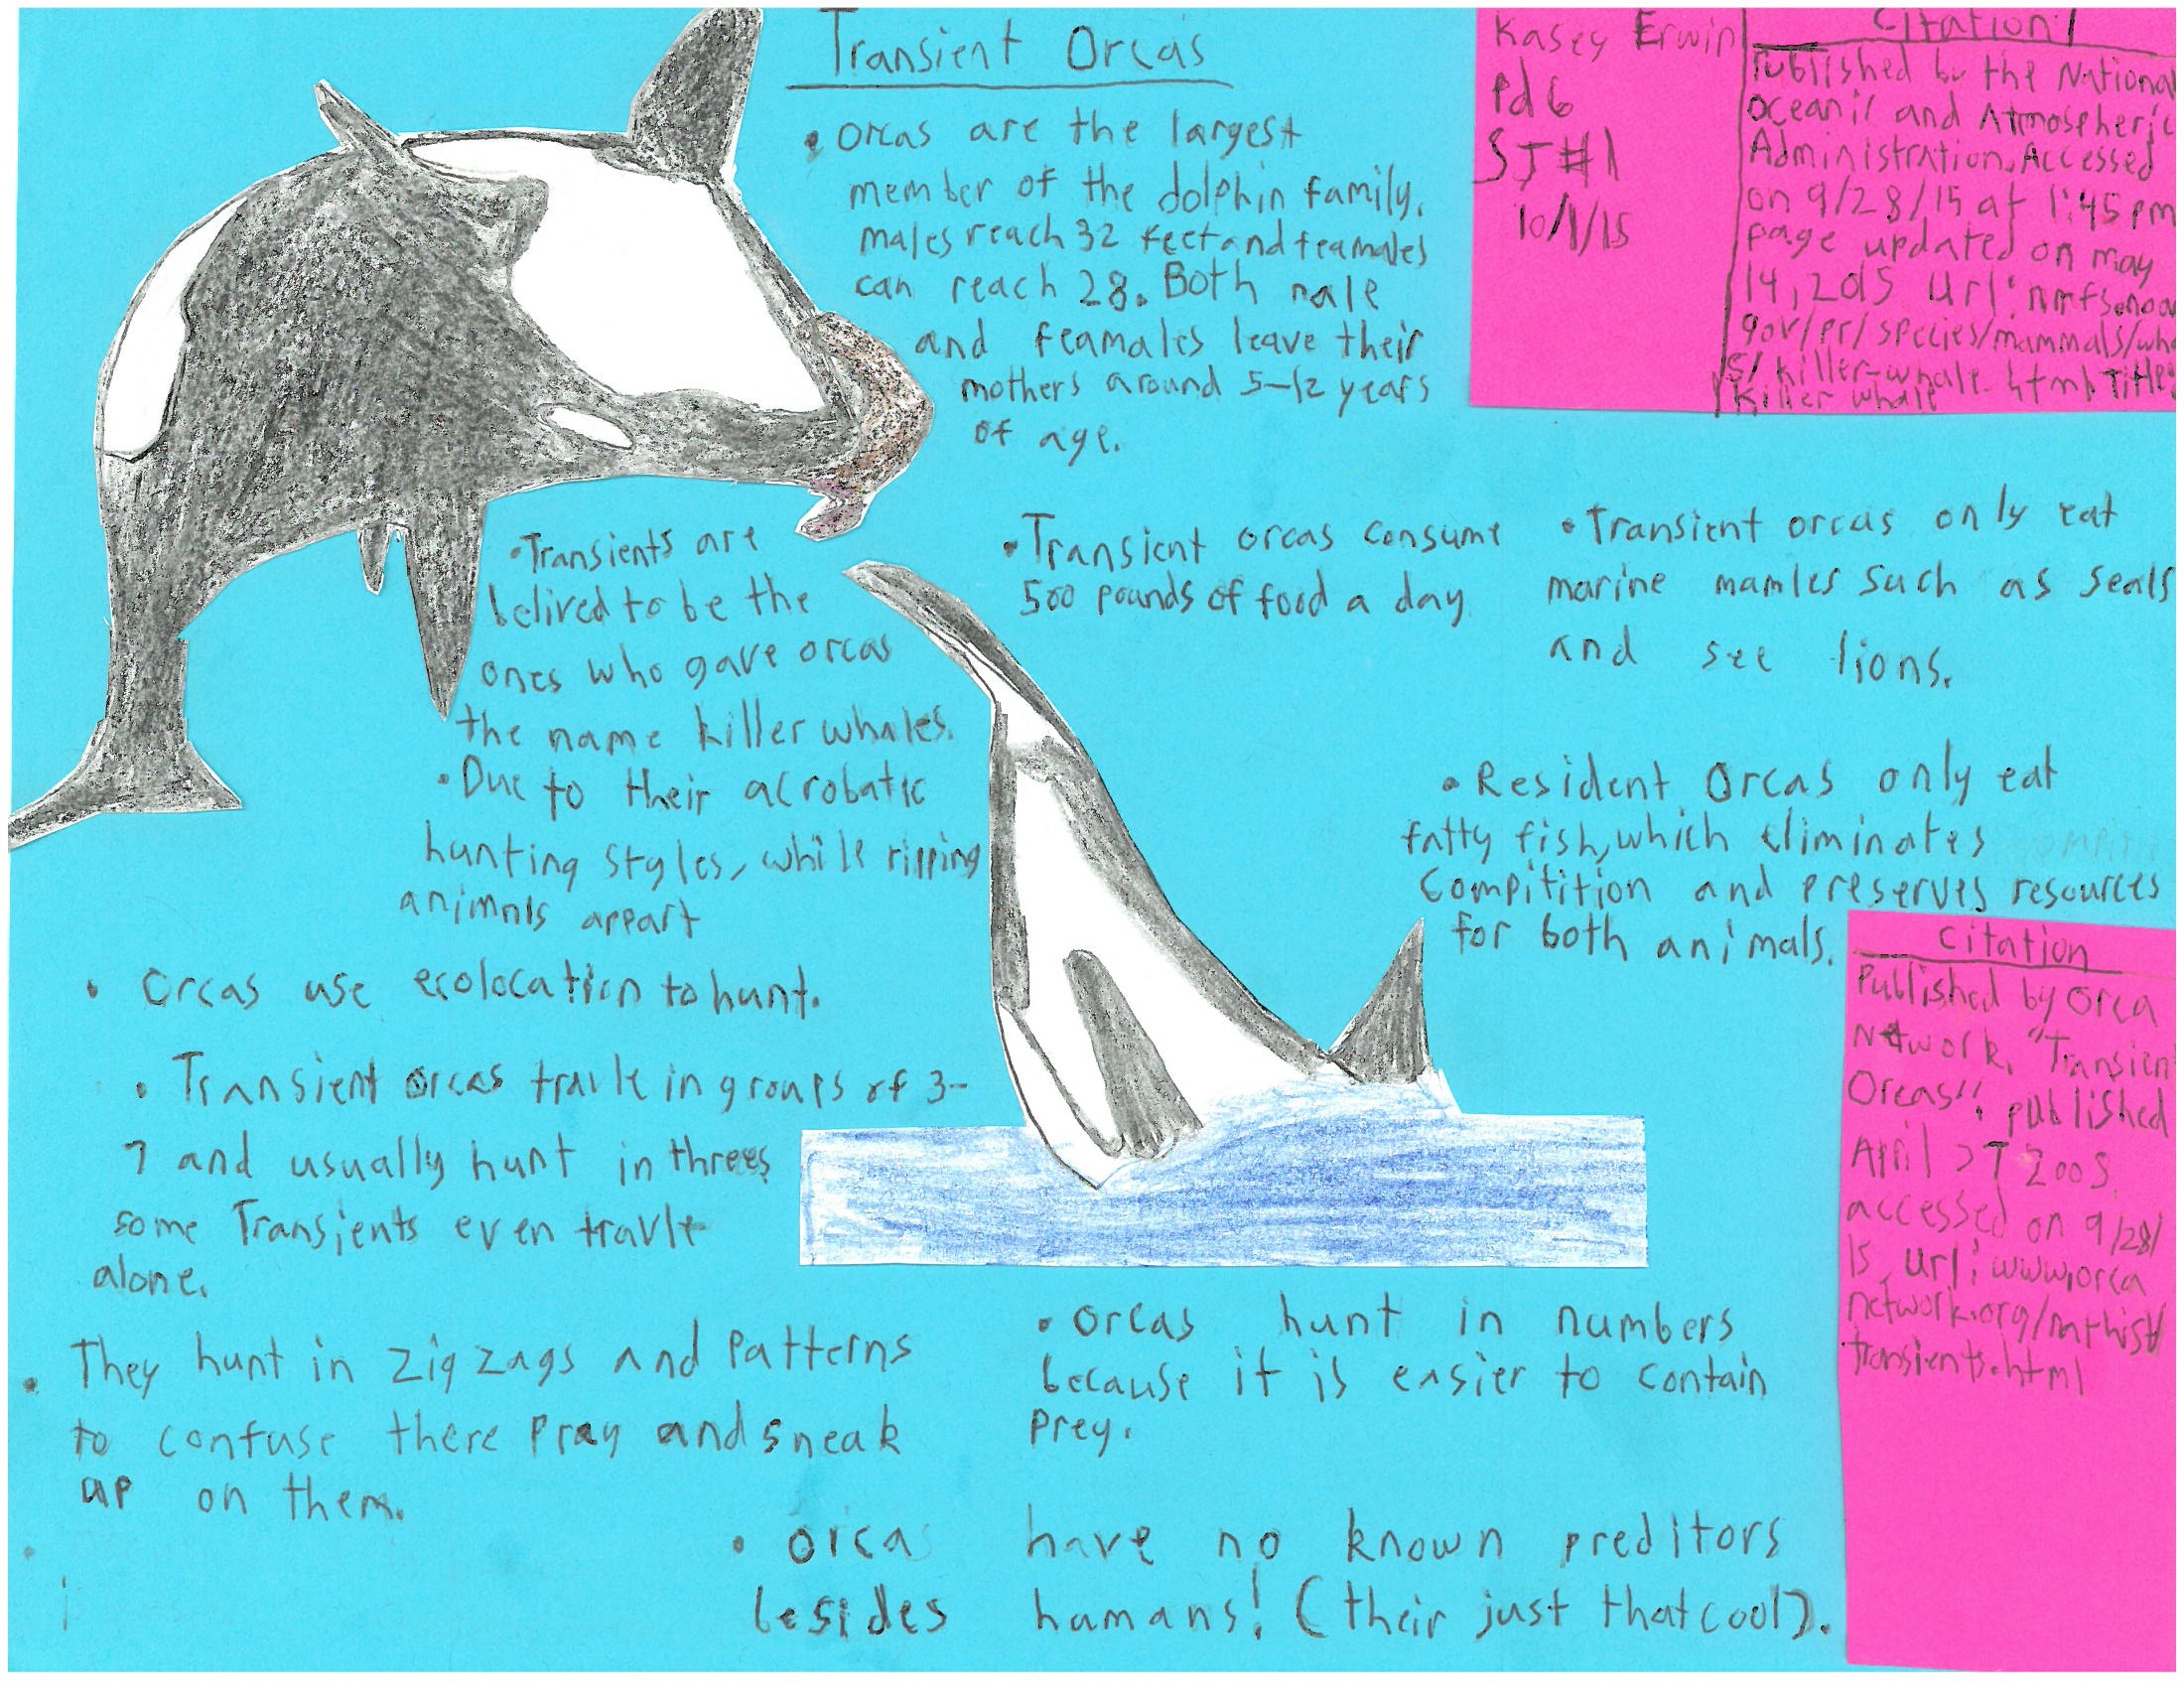 Transient Orcas
• Orcas are the largest
member of the dolphin family.
males reach 32 feet and feamales
can reach 28. Both male
and feamales leave their
mothers around 5-12 years
of age.
Kasey Erwin
Pd 6
SJ#1
10/1/15
Citation
Published by the National
Oceanic and Atmospheric
Administration. Accessed
on 9/28/15 at 1:45 pm
page updated on may
14, 2015 Url: nmfs.noaa
gov/pr/species/mammals/wha
s/killer-whale.html Title:
killer whale
• Transients are
belived to be the
ones who gave orcas
the name killer whales.
• Due to their acrobatic
hunting styles, while ripping
animals appart
• Transient orcas consume
500 pounds of food a day
• Transient orcas only eat
marine mamles such as seals
and see lions.
• Resident Orcas only eat
fatty fish, which eliminates
Compitition and preserves resources
for both animals.
• Orcas use ecolocation to hunt.
• Transient orcas travle in groups of 3-
7 and usually hunt in threes
some Transients even travle
alone.
• They hunt in zig zags and Patterns
to confuse there pray and sneak
up on them.
• Orcas hunt in numbers
because it is easier to contain
prey.
• orca have no known preditors
besides humans! (their just that cool).
Citation
Published by Orca
Network, "Transien
Orcas". published
April 2005.
accessed on 9/28/
15 url: www.orca
network.org/nathist/
transients.html